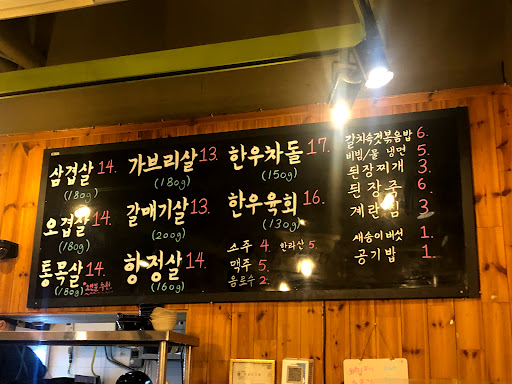 삼겹살 14.
(180g)
오겹살 14.
(180g)
통목살 14.
(180g)
가브리살 13.
(180g)
갈매기살 13.
(200g)
항정살 14.
(160g)
한우차돌 17.
(150g)
한우육회 16.
(130g)
소주 4. 한라산 5
맥주 5.
음료수 2.
갈치속젓볶음밥 6.
비빔/물 냉면 5.
된장찌개 3.
된장죽 6.
계란찜 3
새송이버섯 1.
공기밥 1.